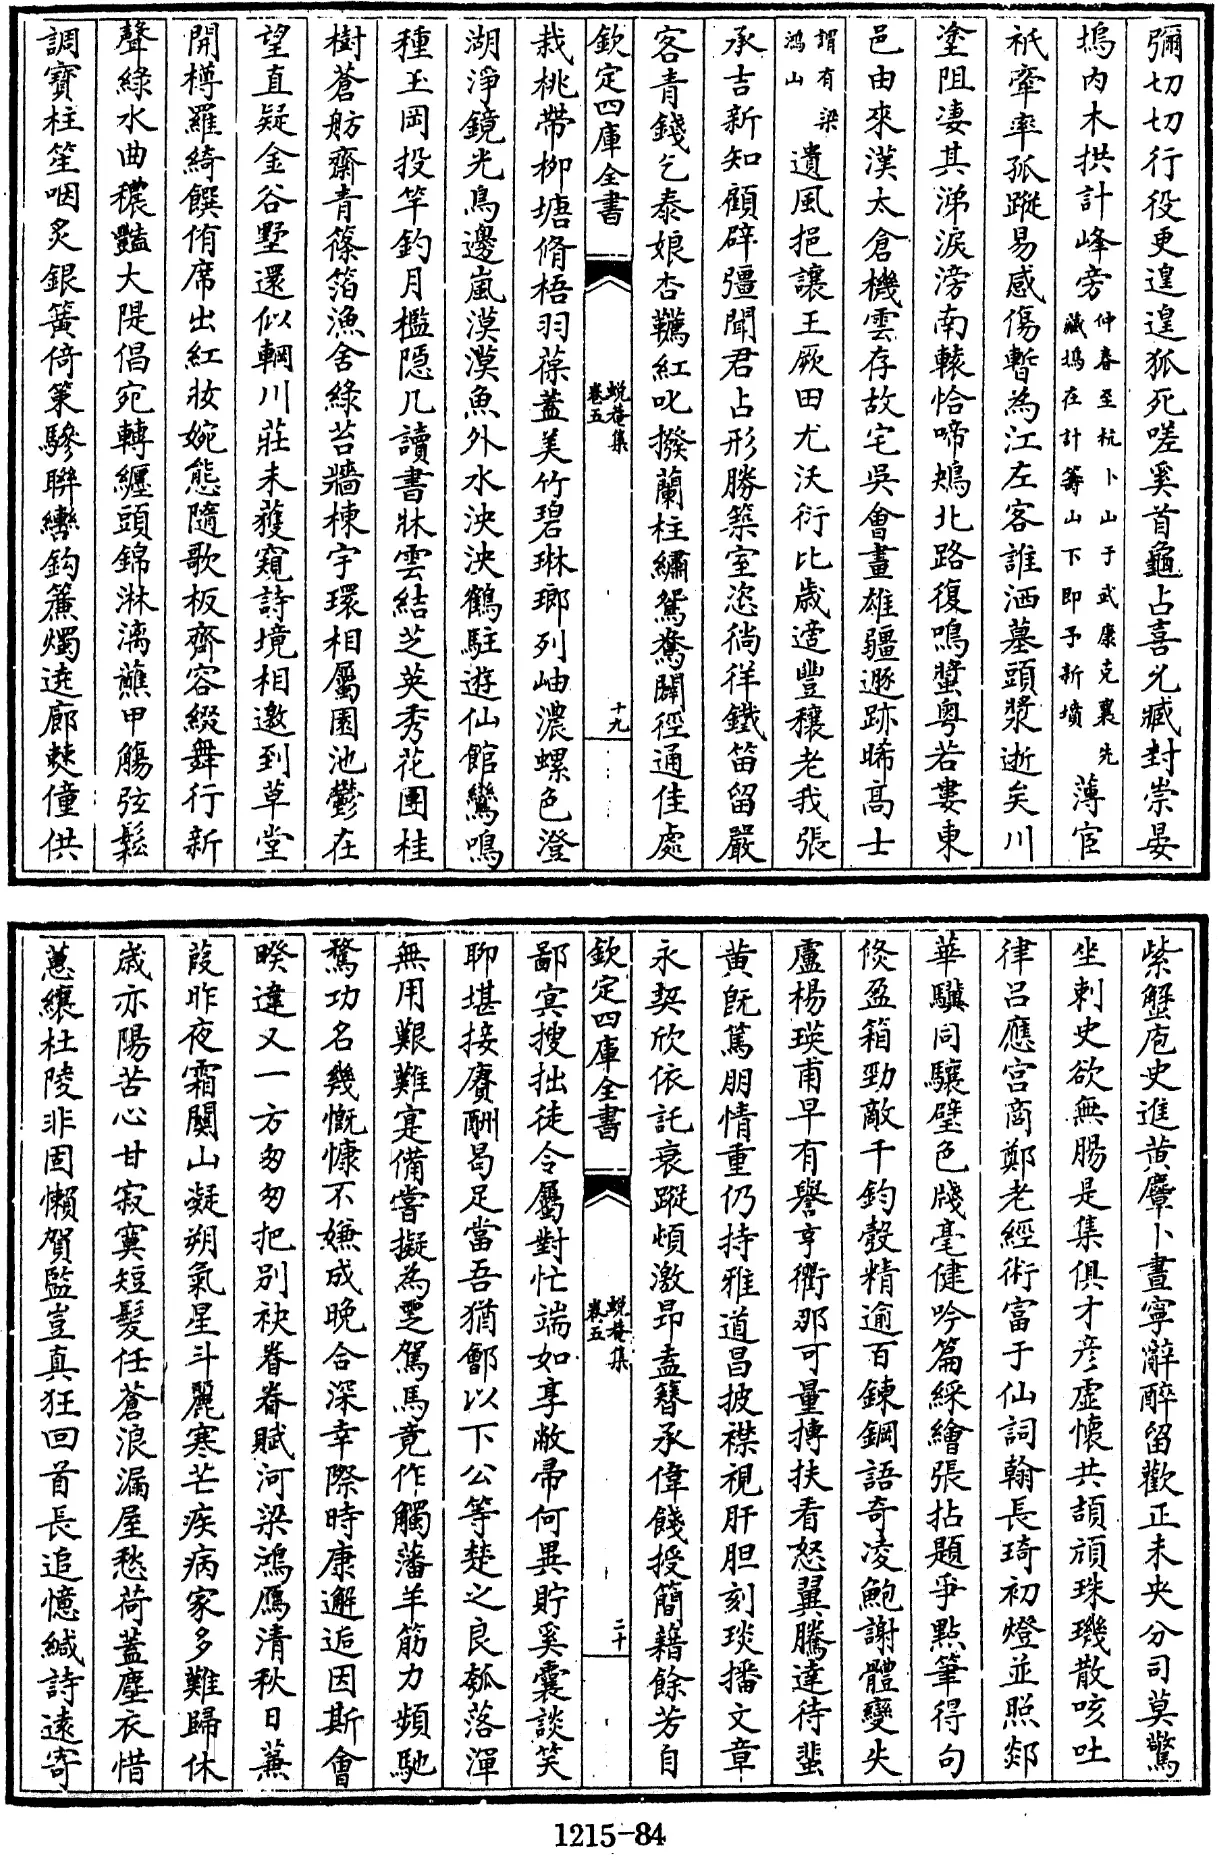 彌切切行役更遑遑狐死嗟奚首龜占喜允臧對崇晏
塢內木拱計峰旁仲春至杭卜山于武康克襄先藏塢在計籌山下即予新墳薄宦
祇牽率孤蹤易感傷暫為江左客誰洒墓頭漿逝矣川
塗阻凄其涕淚滂南轅恰啼鴂北路復鳴螿粤若婁東
邑由來漢太倉機雲存故宅吳會畫雄疆遯跡晞高士
謂有梁鴻山遺風挹讓王厥田尤沃衍比歲適豐穰老我張
承吉新知顧辟彊聞君占形勝築室恣徜徉鐵笛留嚴
客青錢乞泰娘杏韉紅叱撥蘭柱繡鴛鴦闢徑通佳處
欽定四庫全書
蛻菴集
卷五
十九
栽桃帶柳塘脩梧羽葆蓋美竹碧琳瑯列岫濃螺色澄
湖淨鏡光鳥邊嵐漠漠魚外水泱泱鶴駐遊仙館鸞鳴
種玉岡投竿釣月檻隱几讀書牀雲結芝英秀花團桂
樹蒼舫齋青篠箔漁舍綠苔牆棟宇環相屬園池鬱在
望直疑金谷墅還似輞川莊未獲窺詩境相邀到草堂
開樽羅綺饌侑席出紅妝婉態隨歌板齊容綴舞行新
聲綠水曲穠豔大隄倡宛轉纏頭錦淋漓蘸甲觴弦鬆
調寶柱笙咽炙銀簧倚策驂聯轡鈎簾燭遶廊麬僮供
紫蟹庖史進黄麞卜晝寧辭醉留歡正未央分司莫驚
坐刺史欲無腸是集俱才彦虛懷共頡頏珠璣散咳吐
律呂應宮商鄭老經術富于仙詞翰長琦初燈並照郯
華驥同驤璧色牋毫健吟篇綵繪張拈題爭點筆得句
倐盈箱勁敵千鈞彀精逾百鍊鋼語奇凌鮑謝體變失
盧楊瑛甫早有譽亨衢那可量摶扶看怒翼騰達待蜚
黄旣篤朋情重仍持雅道昌披襟視肝胆刻琰播文章
永契欣依託衰蹤頓激昂盍簪承偉餞授簡藉餘芳自
欽定四庫全書
蛻菴集
卷五
二十
鄙㝠搜拙徒令屬對忙端如享敝帚何異貯奚囊談笑
聊堪接賡酬曷足當吾猶鄶以下公等楚之良瓠落渾
無用艱難寔備嘗擬為范駕馬竟作觸藩羊筋力頻馳
騖功名幾慨慷不嫌成晚合深幸際時康邂逅因斯會
暌違又一方匆匆把别袂眷眷賦河梁鴻鴈清秋日蒹
葭昨夜霜關山凝朔氣星斗麗寒芒疾病家多難歸休
歲亦陽苦心甘寂寞短髮任蒼浪漏屋愁荷蓋塵衣惜
蕙纕杜陵非固懶賀監豈真狂回首長追憶緘詩遠寄
1215-84